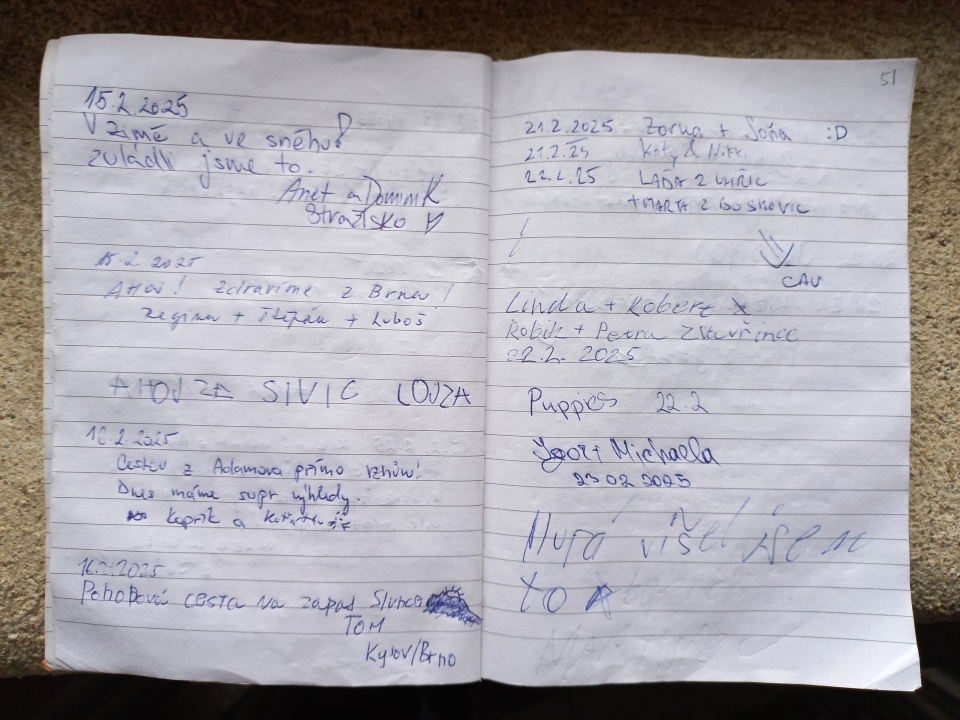 15.2.2025
V zimě a ve sněhu!
zvládli jsme to...
Anet a Dominik
Stražisko
15.2.2025
Ahoj! Zdravíme z Brna!
Regina + Štěpán + Luboš
AHOJ ZA SIVIC LOJZA
16.2.2025
Cestou z Adamova přímo vzhůru!
Dnes máme supr výhledy.
Kaprik a
16.2.2025
Pohodová cesta na zapad Slunce
TOM
Kyjov/Brno
51
21.2.2025 Zorka + Soňa :D
21.2.25 Katy & Nikk.
22.2.25 LAĎA Z UHŘIC
+ MARTA Z BOSKOVIC
CAU
Linda + Robert
Robik + Petra z Vavřince
22.2. 2025
Puppies 22.2
Igor + Michaela
23 02 2025
Hurá vyšel jsem
to